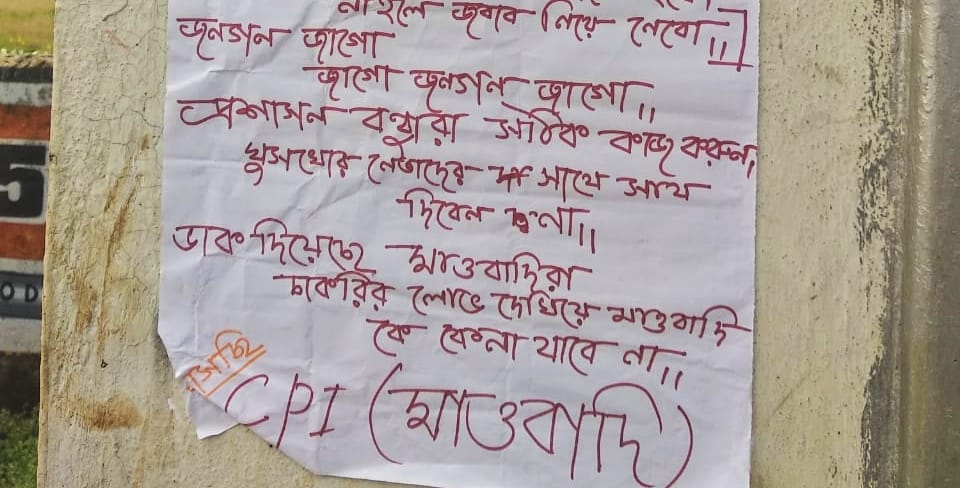 নাহলে জবাব নিয়ে নেবো॥]
জনগন জাগো
জাগো জনগন জাগো॥
প্রশাসন বন্ধুরা সঠিক কাজ করুন,
ঘুসখোর নেতাদের সাথে সাথ
দিবেন না॥
ডাক দিয়েছে মাওবাদিরা
চাকরির লোভে দেখিয়ে মাওবাদি
কে কেনা যাবে না॥
CPI (মাওবাদি)
5
OD